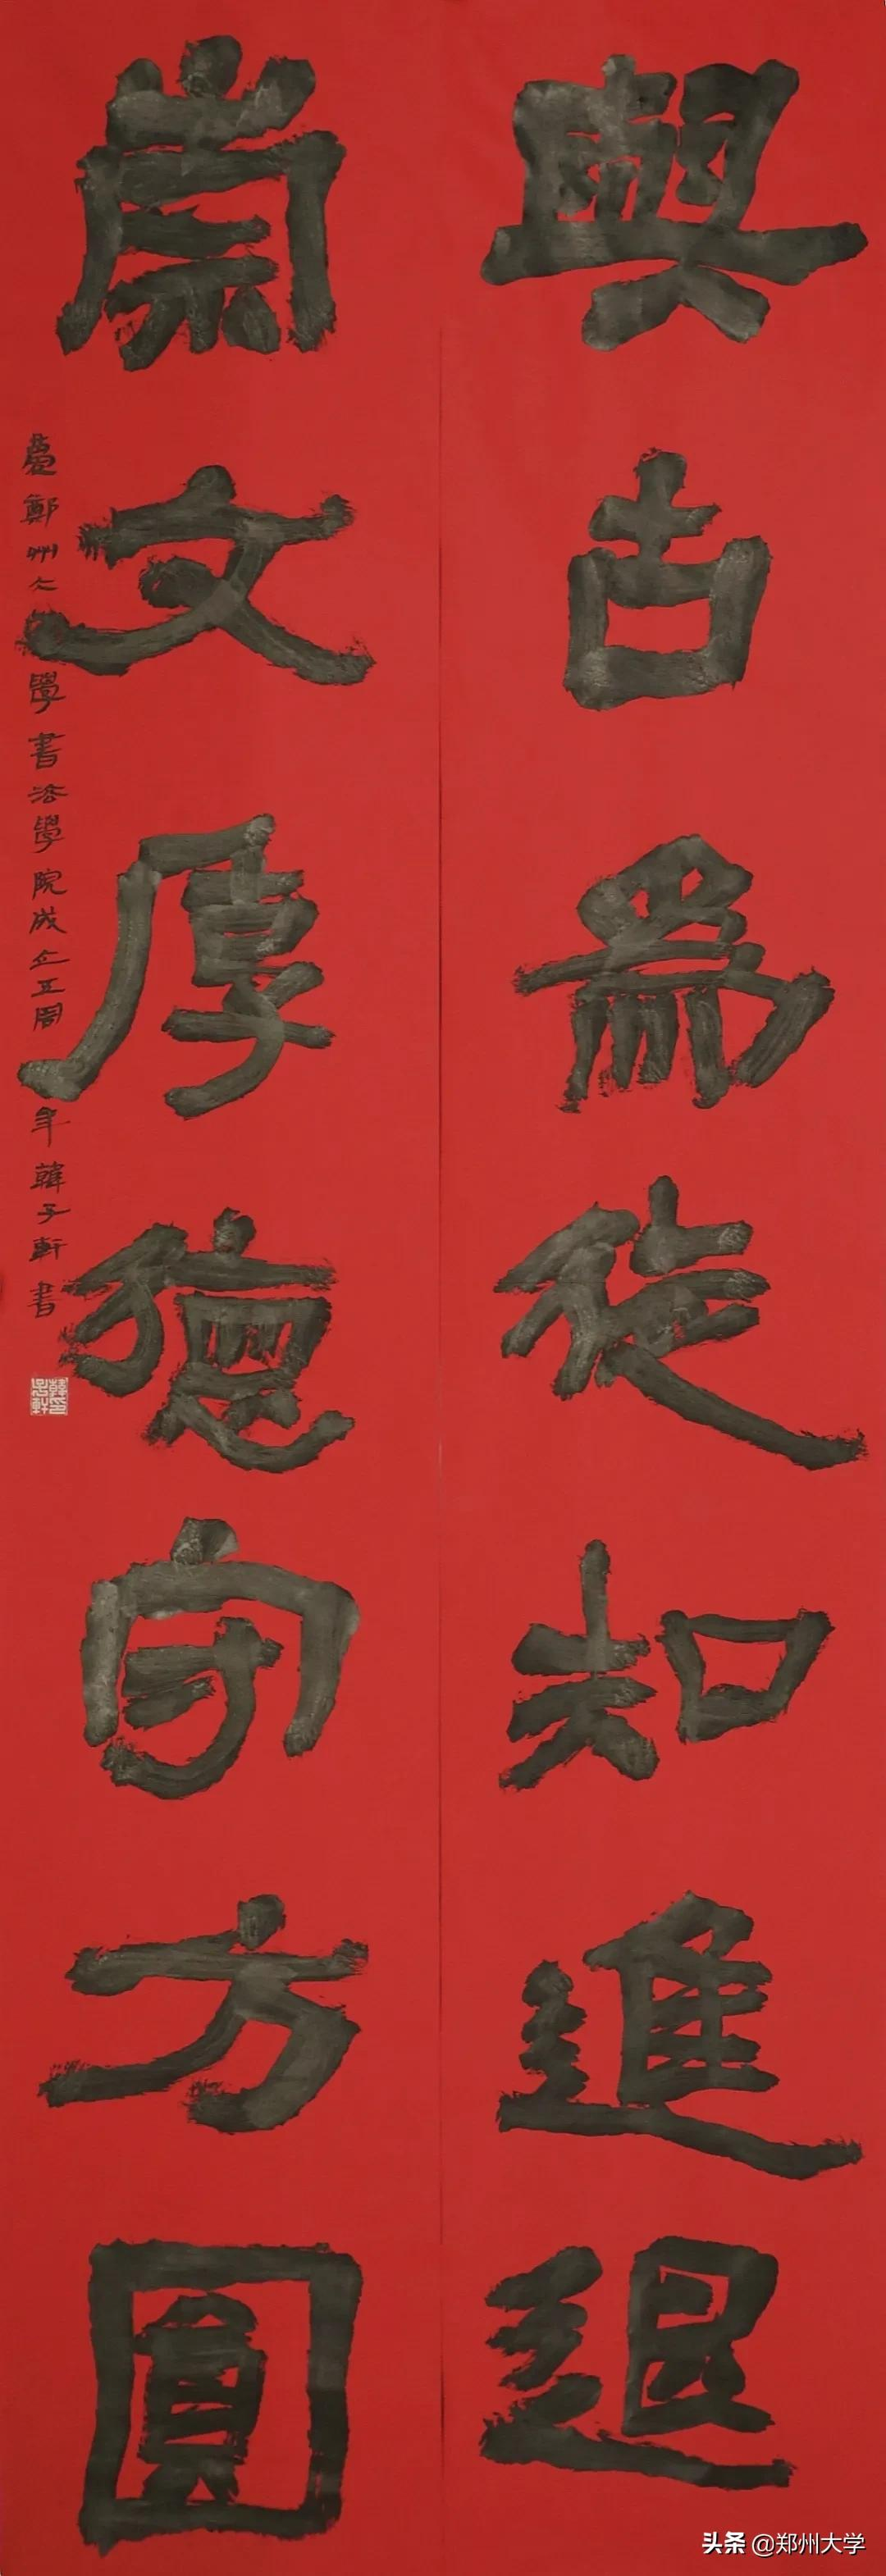 與古爲徒知進退
崇文厚德守方圓
慶鄭州大學書法學院成立五周年韓子軒書
头条 @郑州大学